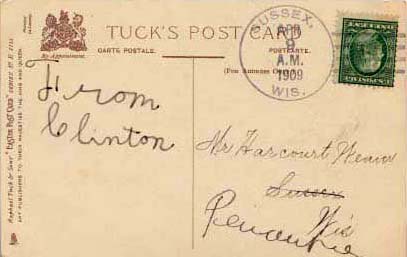 TUCK'S POST CARD
CARTE POSTALE.
POSTKARTE.
By Appointment.
(For Address Only
SUSSEX,
APR
8
A.M.
1909
WIS.
From
Clinton
Mr Harcourt Weaver
Sussex
Wis
Raphael Tuck & Sons' "EASTER POST CARD" SERIES
ART PUBLISHERS TO THEIR MAJESTIES THE KING AND QUEEN.